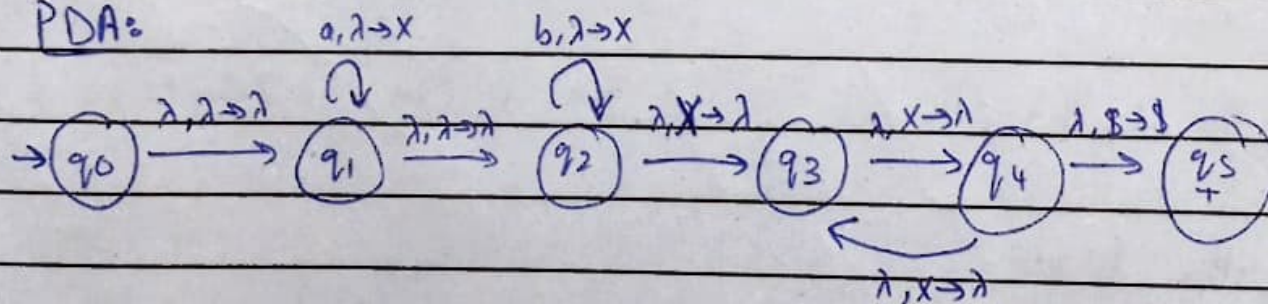 PDA:
a, λ→X b, λ→X
λ, λ→λ λ, λ→λ λ, X→λ λ, X→λ λ, $→$
→ q0 → q1 → q2 → q3 → q4 → q5
+
λ, X→λ